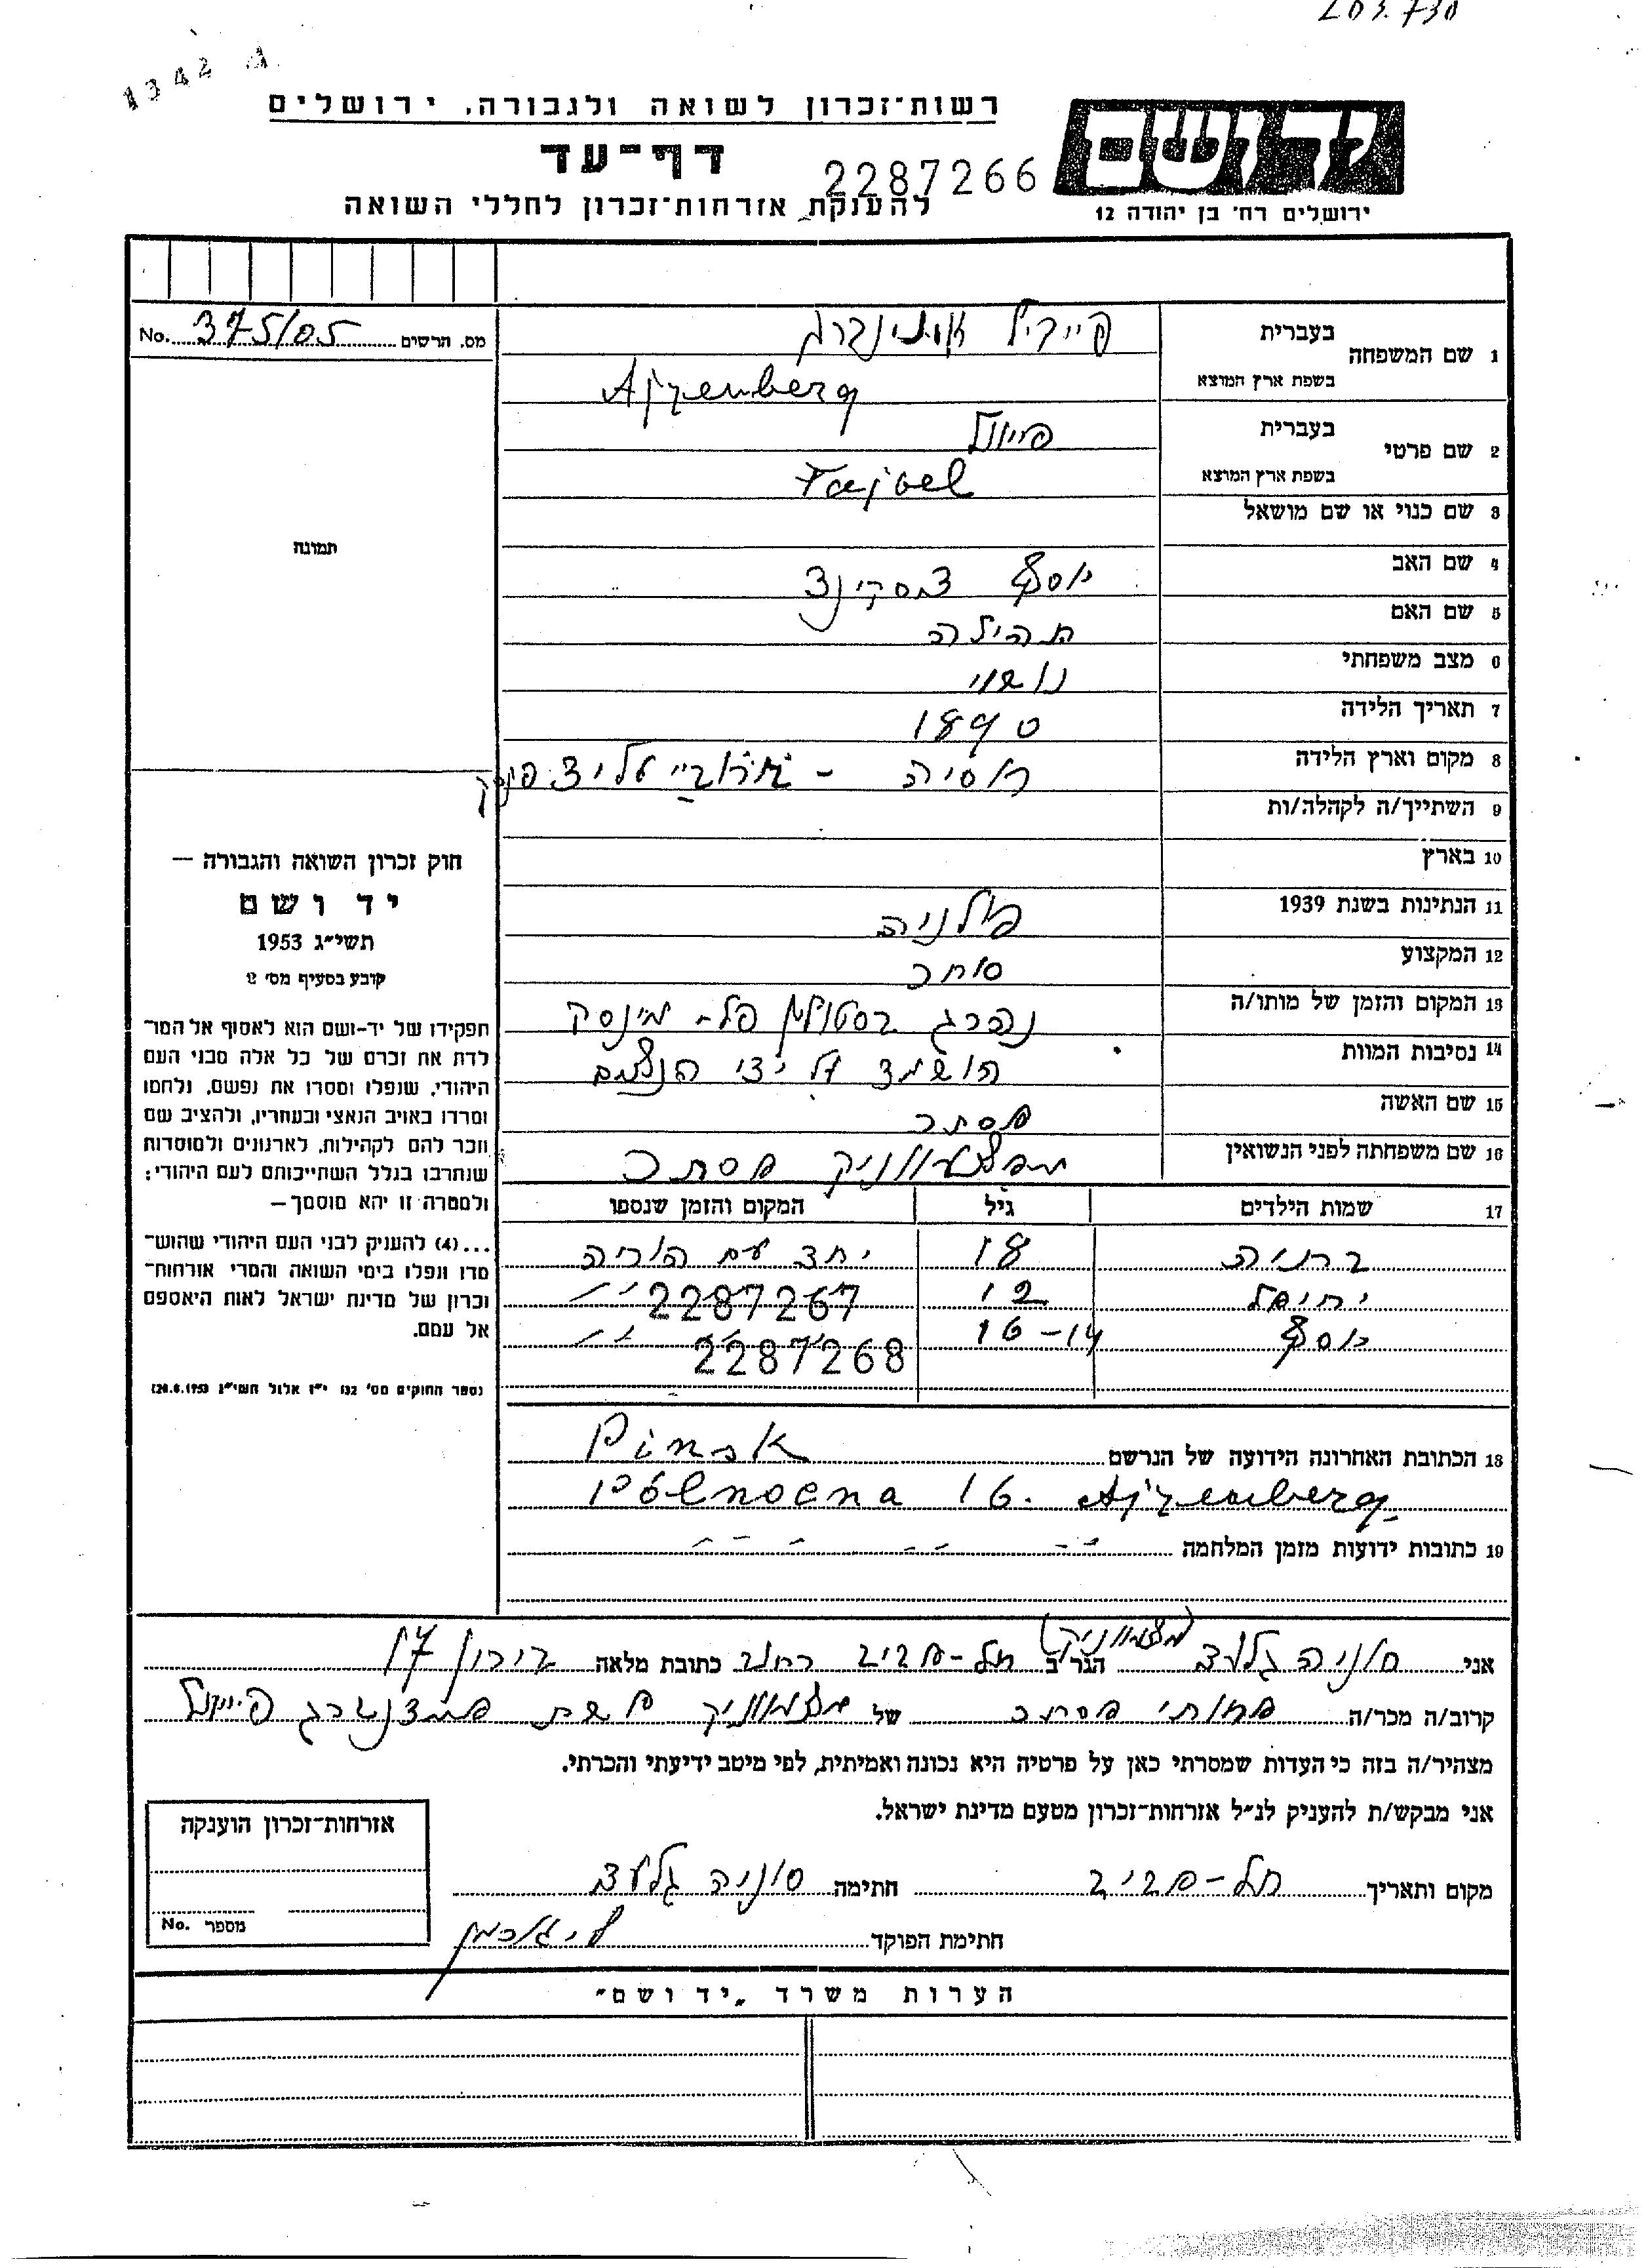 1342
203.730
רשות־זכרון לשואה ולגבורה, ירושלים
דף־עד
2287266
להענקת אזרחות־זכרון לחללי השואה
יד ושם
ירושלים רח' בן יהודה 12
מס. תרשים 375/05 No.
1 שם המשפחה בעברית
בשפת ארץ המוצא Ajzenberg
2 שם פרטי בעברית
בשפת ארץ המוצא Fajvel
3 שם כנוי או שם מושאל
תמונה
4 שם האב יוסף
5 שם האם תהילה
6 מצב משפחתי נשוי
7 תאריך הלידה 1890
8 מקום וארץ הלידה רוסיה -
9 השתייך/ה לקהלה/ות
10 בארץ
11 הנתינות בשנת 1939 פולניה
12 המקצוע סוחר
13 המקום והזמן של מותו/ה נהרג בסטולין פלך מינסק
14 נסיבות המוות הושמד על ידי הנאצים
15 שם האשה אסתר
16 שם משפחתה לפני הנשואין אסתר
17 שמות הילדים גיל המקום והזמן שנספו
ברוניה 18 יחד עם הוריה
יחיאל 12 " 2287267
יוסף 14-16 " 2287268
חוק זכרון השואה והגבורה —
יד ושם
תשי״ג 1953
קובע בסעיף מס׳ 2
תפקידו של יד-ושם הוא לאסוף אל המו־
לדת את זכרם של כל אלה מבני העם
היהודי, שנפלו ומסרו את נפשם, נלחמו
ומרדו באויב הנאצי ובעוזריו, ולהציב שם
וזכר להם לקהילות, לארגונים ולמוסדות
שנחרבו בגלל השתייכותם לעם היהודי;
ולמטרה זו יהא מוסמך—
...(4) להעניק לבני העם היהודי שהוש־
מדו ונפלו בימי השואה והמרי אזרחות־
זכרון של מדינת ישראל לאות היאספם
אל עמם.
(ספר החוקים מס׳ 132 י״ז אלול תשי״ג 28.8.1953)
18 הכתובת האחרונה הידועה של הנרשם Pinsk
Północna 16. Ajzenberg
19 כתובות ידועות מזמן המלחמה
אני סוניה גלעד הגר ב תל-אביב רחוב כתובת מלאה בירון 17
קרוב/ה מכר/ה אחותי אסתר של
מצהיר/ה בזה כי העדות שמסרתי כאן על פרטיה היא נכונה ואמיתית, לפי מיטב ידיעתי והכרתי.
אני מבקש/ת להעניק לנ״ל אזרחות־זכרון מטעם מדינת ישראל.
מקום ותאריך תל-אביב חתימה סוניה גלעד
חתימת הפוקד
אזרחות־זכרון הוענקה
מספר No.
הערות משרד „יד ושם״